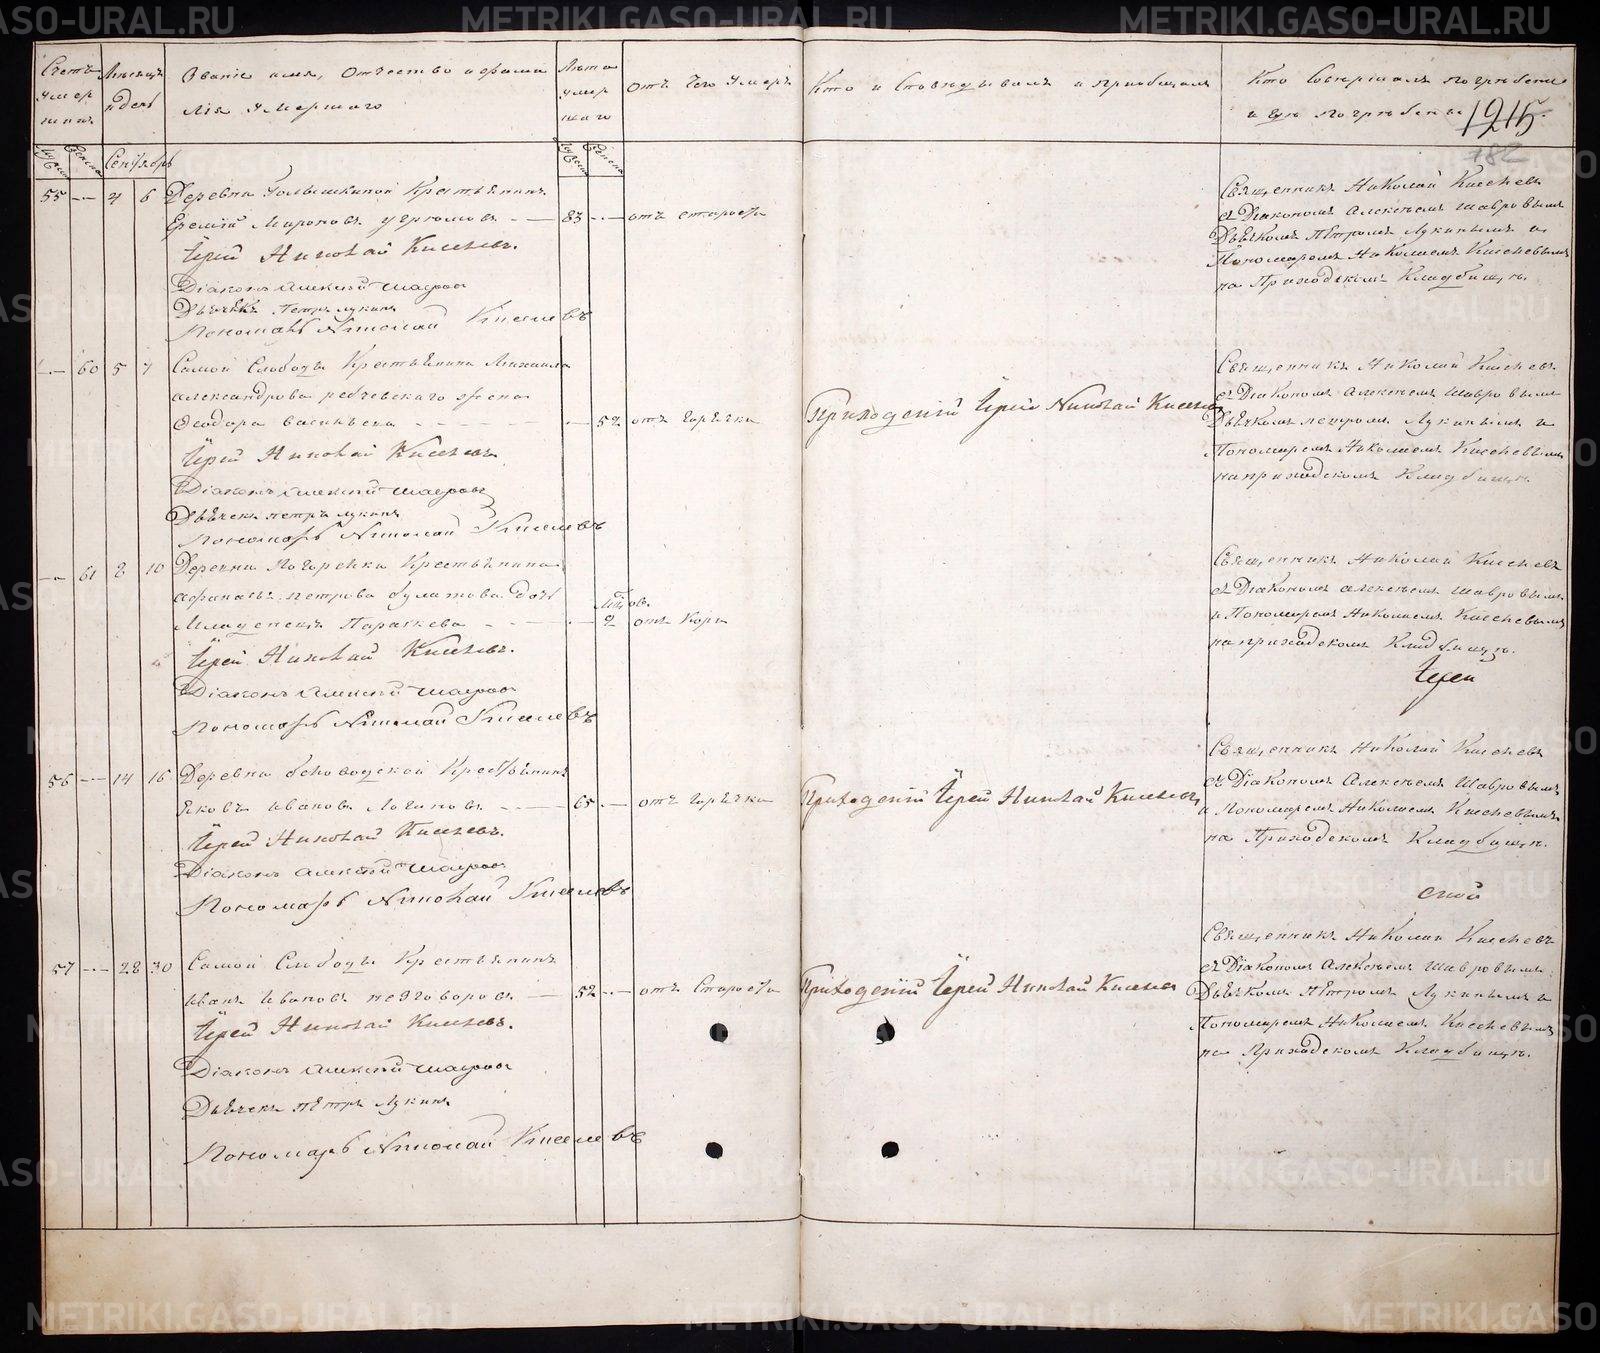 METRIKI.GASO-URAL.RU
Счетъ умершихъ
Мѣсяцъ и день
Званіе имя, Отчество и фамилія Умершаго
Лѣта умершаго
Отъ чего Умеръ
Кто исповѣдывалъ и пріобщалъ
Кто Совершалъ погребеніе и гдѣ погребены
1215
182
Сентябрь
55 4 6 Деревни Крестьянинъ
Еремѣй Мироновъ 83 отъ старости
Іерей Николай Киселевъ.
Діаконъ Алексѣй Шавровъ
Дьячекъ Петръ Лукинъ
Пономарь Николай Киселевъ
Священникъ Николай Киселевъ
съ Діакономъ Алексѣемъ Шавровымъ
Дьячкомъ Петромъ Лукинымъ и
Пономаремъ Николаемъ Киселевымъ
на Приходскомъ Кладбищѣ.
60 5 7 Самой Слободы Крестьянина Михаила
Александрова жена
Ѳеодора Васильева 52 отъ горячки
Іерей Николай Киселевъ
Діаконъ Алексѣй Шавровъ
Дьячекъ Петръ Лукинъ
Пономарь Николай Киселевъ
Приходскій Іерей Николай Киселевъ
Священникъ Николай Киселевъ
съ Діакономъ Алексѣемъ Шавровымъ
Дьячкомъ Петромъ Лукинымъ и
Пономаремъ Николаемъ Киселевымъ
на приходскомъ Кладбищѣ.
61 8 10 Деревни Погорелки Крестьянина
Афанасья Петрова Булатова дочь
Младенецъ Параскева 2 отъ Кори
Іерей Николай Киселевъ.
Діаконъ Алексѣй Шавровъ
Пономарь Николай Киселевъ
Священникъ Николай Киселевъ
съ Діакономъ Алексѣемъ Шавровымъ
и Пономаремъ Николаемъ Киселевымъ
на приходскомъ Кладбищѣ.
Іерей
56 14 16 Деревни Беловодской Крестьянинъ
Яковъ Ивановъ Логиновъ 65 отъ горячки
Іерей Николай Киселевъ.
Діаконъ Алексѣй Шавровъ
Пономарь Николай Киселевъ
Приходскій Іерей Николай Киселевъ
Священникъ Николай Киселевъ
съ Діакономъ Алексѣемъ Шавровымъ
и Пономаремъ Николаемъ Киселевымъ
на Приходскомъ Кладбищѣ.
57 28 30 Самой Слободы Крестьянинъ
Иванъ Ивановъ Незговоровъ 52 отъ Старости
Іерей Николай Киселевъ.
Діаконъ Алексѣй Шавровъ
Дьячекъ Петръ Лукинъ
Пономарь Николай Киселевъ
Приходскій Іерей Николай Киселевъ
Священникъ Николай Киселевъ
съ Діакономъ Алексѣемъ Шавровымъ
Дьячкомъ Петромъ Лукинымъ и
Пономаремъ Николаемъ Киселевымъ
на Приходскомъ Кладбищѣ.